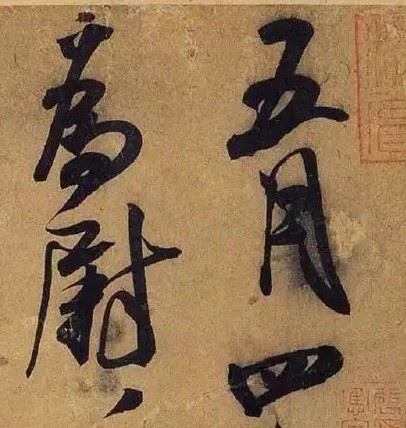 五月四
為慰